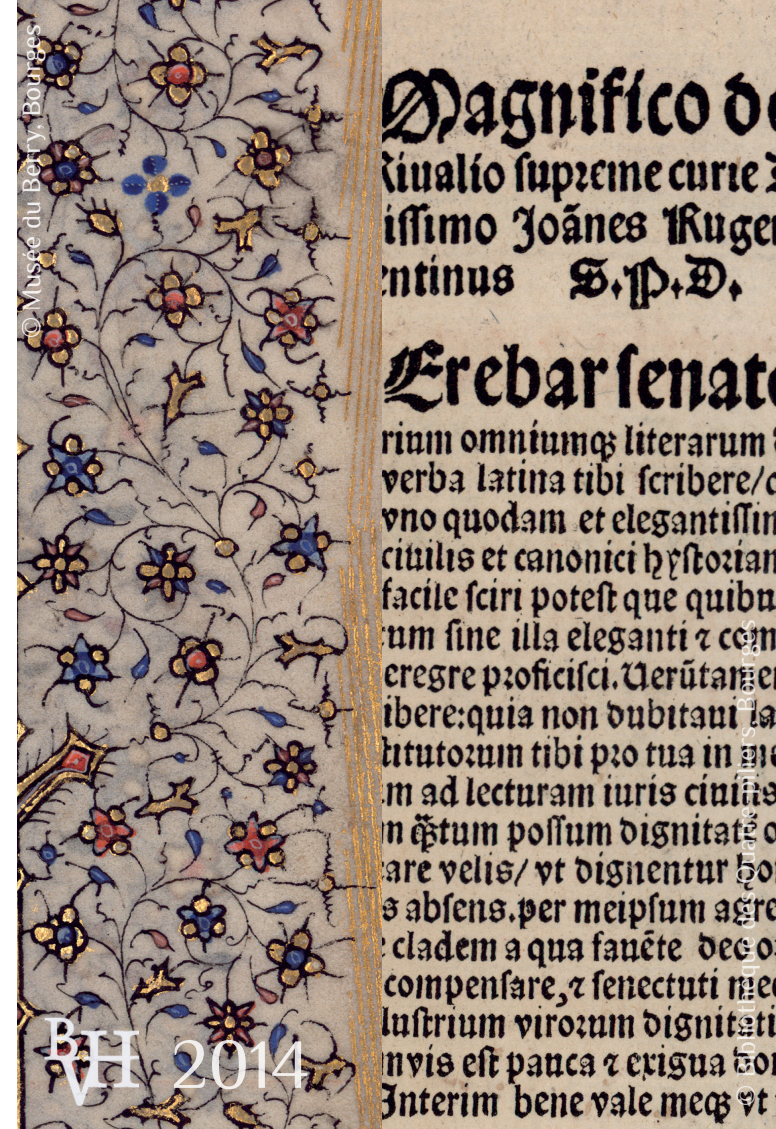 Magnifico do
Riualio ſupꝛeme curie
iſſimo Joãnes Ruge
entinus S.P.D.
Erebar ſenato
rium omniumqꝫ literarum
verba latina tibi ſcribere/
vno quodam et elegantiſſi
ciuilis et canonici hyſtoꝛian
facile ſciri poteſt que quibu
cum ſine illa eleganti ⁊ com
eregre pꝛoficiſci. Uerũtamen
ibere: quia non dubitaui la
titutoꝛum tibi pꝛo tua in me
m ad lecturam iuris ciuilis
n q̃tum poſſum dignitati
are velis/ vt dignentur
s abſens. per meipſum agre
cladem a qua fauẽte deo
compenſare, ⁊ ſenectuti
luſtrium viroꝛum dignitati
nvis eſt pauca ⁊ exigua
Interim bene vale meqꝫ vt
© Musée du Berry, Bourges
© Bibliothèque des Quatre-piliers, Bourges
BVH 2014